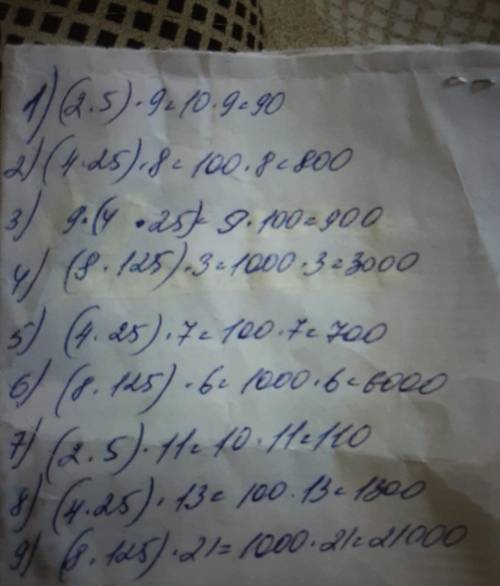 1) (2·5)·9=10·9=90
2) (4·25)·8=100·8=800
3) 9·(4·25)=9·100=900
4) (8·125)·3=1000·3=3000
5) (4·25)·7=100·7=700
6) (8·125)·6=1000·6=6000
7) (2·5)·11=10·11=110
8) (4·25)·13=100·13=1300
9) (8·125)·21=1000·21=21000